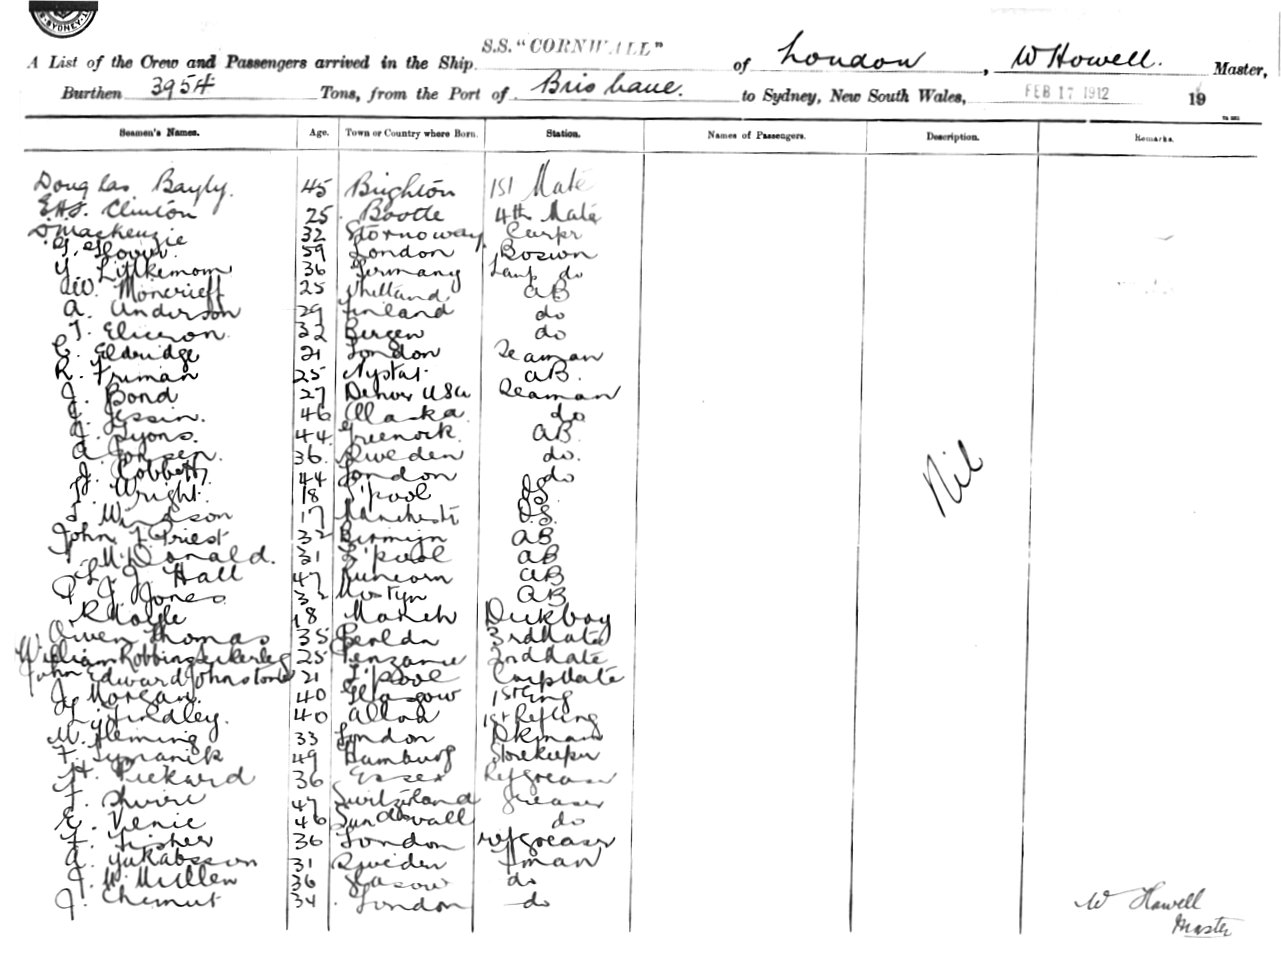 SYDNEY
S.S. "CORNWALL"
A List of the Crew and Passengers arrived in the Ship of London, W Howell. Master,
Burthen 3954 Tons, from the Port of Brisbane. to Sydney, New South Wales, FEB 17 1912 19
Seamen's Names. Age. Town or Country where Born. Station. Names of Passengers. Description. Remarks.
Douglas Bayly. 45 Brighton 1st Mate
E.H.S. Clinton 25 Bootle 4th Mate
D Mackenzie 32 Stornoway Carpr
G. Glover 59 London Boswn
Y. 36 Germany Lamp do
W. Moncrieff 25 Shetland AB
A. Anderson 29 Finland do
T. 32 Bergen do
C. Eldridge 21 London Seaman
R. Friman 25 Nystat AB.
J. Bond 27 Denver USA Seaman
J. Jessin. 46 Alaska do
J. Lyons. 44 Greenock AB
A 36. Sweden do.
J. Cobbett 44 London do
T. Wright. 18 L'pool OS
J. Windson 17 Manchestr O.S.
John T Priest 32 Birmgn AB
McDonald. 31 L'pool AB
L. J. Hall 47 Runcorn AB
P J Jones. 32 Mostyn AB
R Hoyle 18 March Deckboy
Owen Thomas 35 3rd Mate
William Robbins 25 Penzance 2nd Mate
John Edward Johnstone 21 L'pool Carp Mate
J. Morgan. 40 Glasgow 1st Eng
Findley. 40 Alloa 1st Ref Eng
M. Fleming 33 London Dkman
F. Symanick 49 Hamburg Storekeeper
H. Pickard 36 Essex Ref greaser
F. 47 Switzerland greaser
E. Venie 46 Sundsvall do
F. Fisher 36 London ref greaser
A. Yakabsson 31 Sweden Fman
J. McMullen 36 Glasgow do
J. Chemut 34 London do
Nil
W Howell
Master